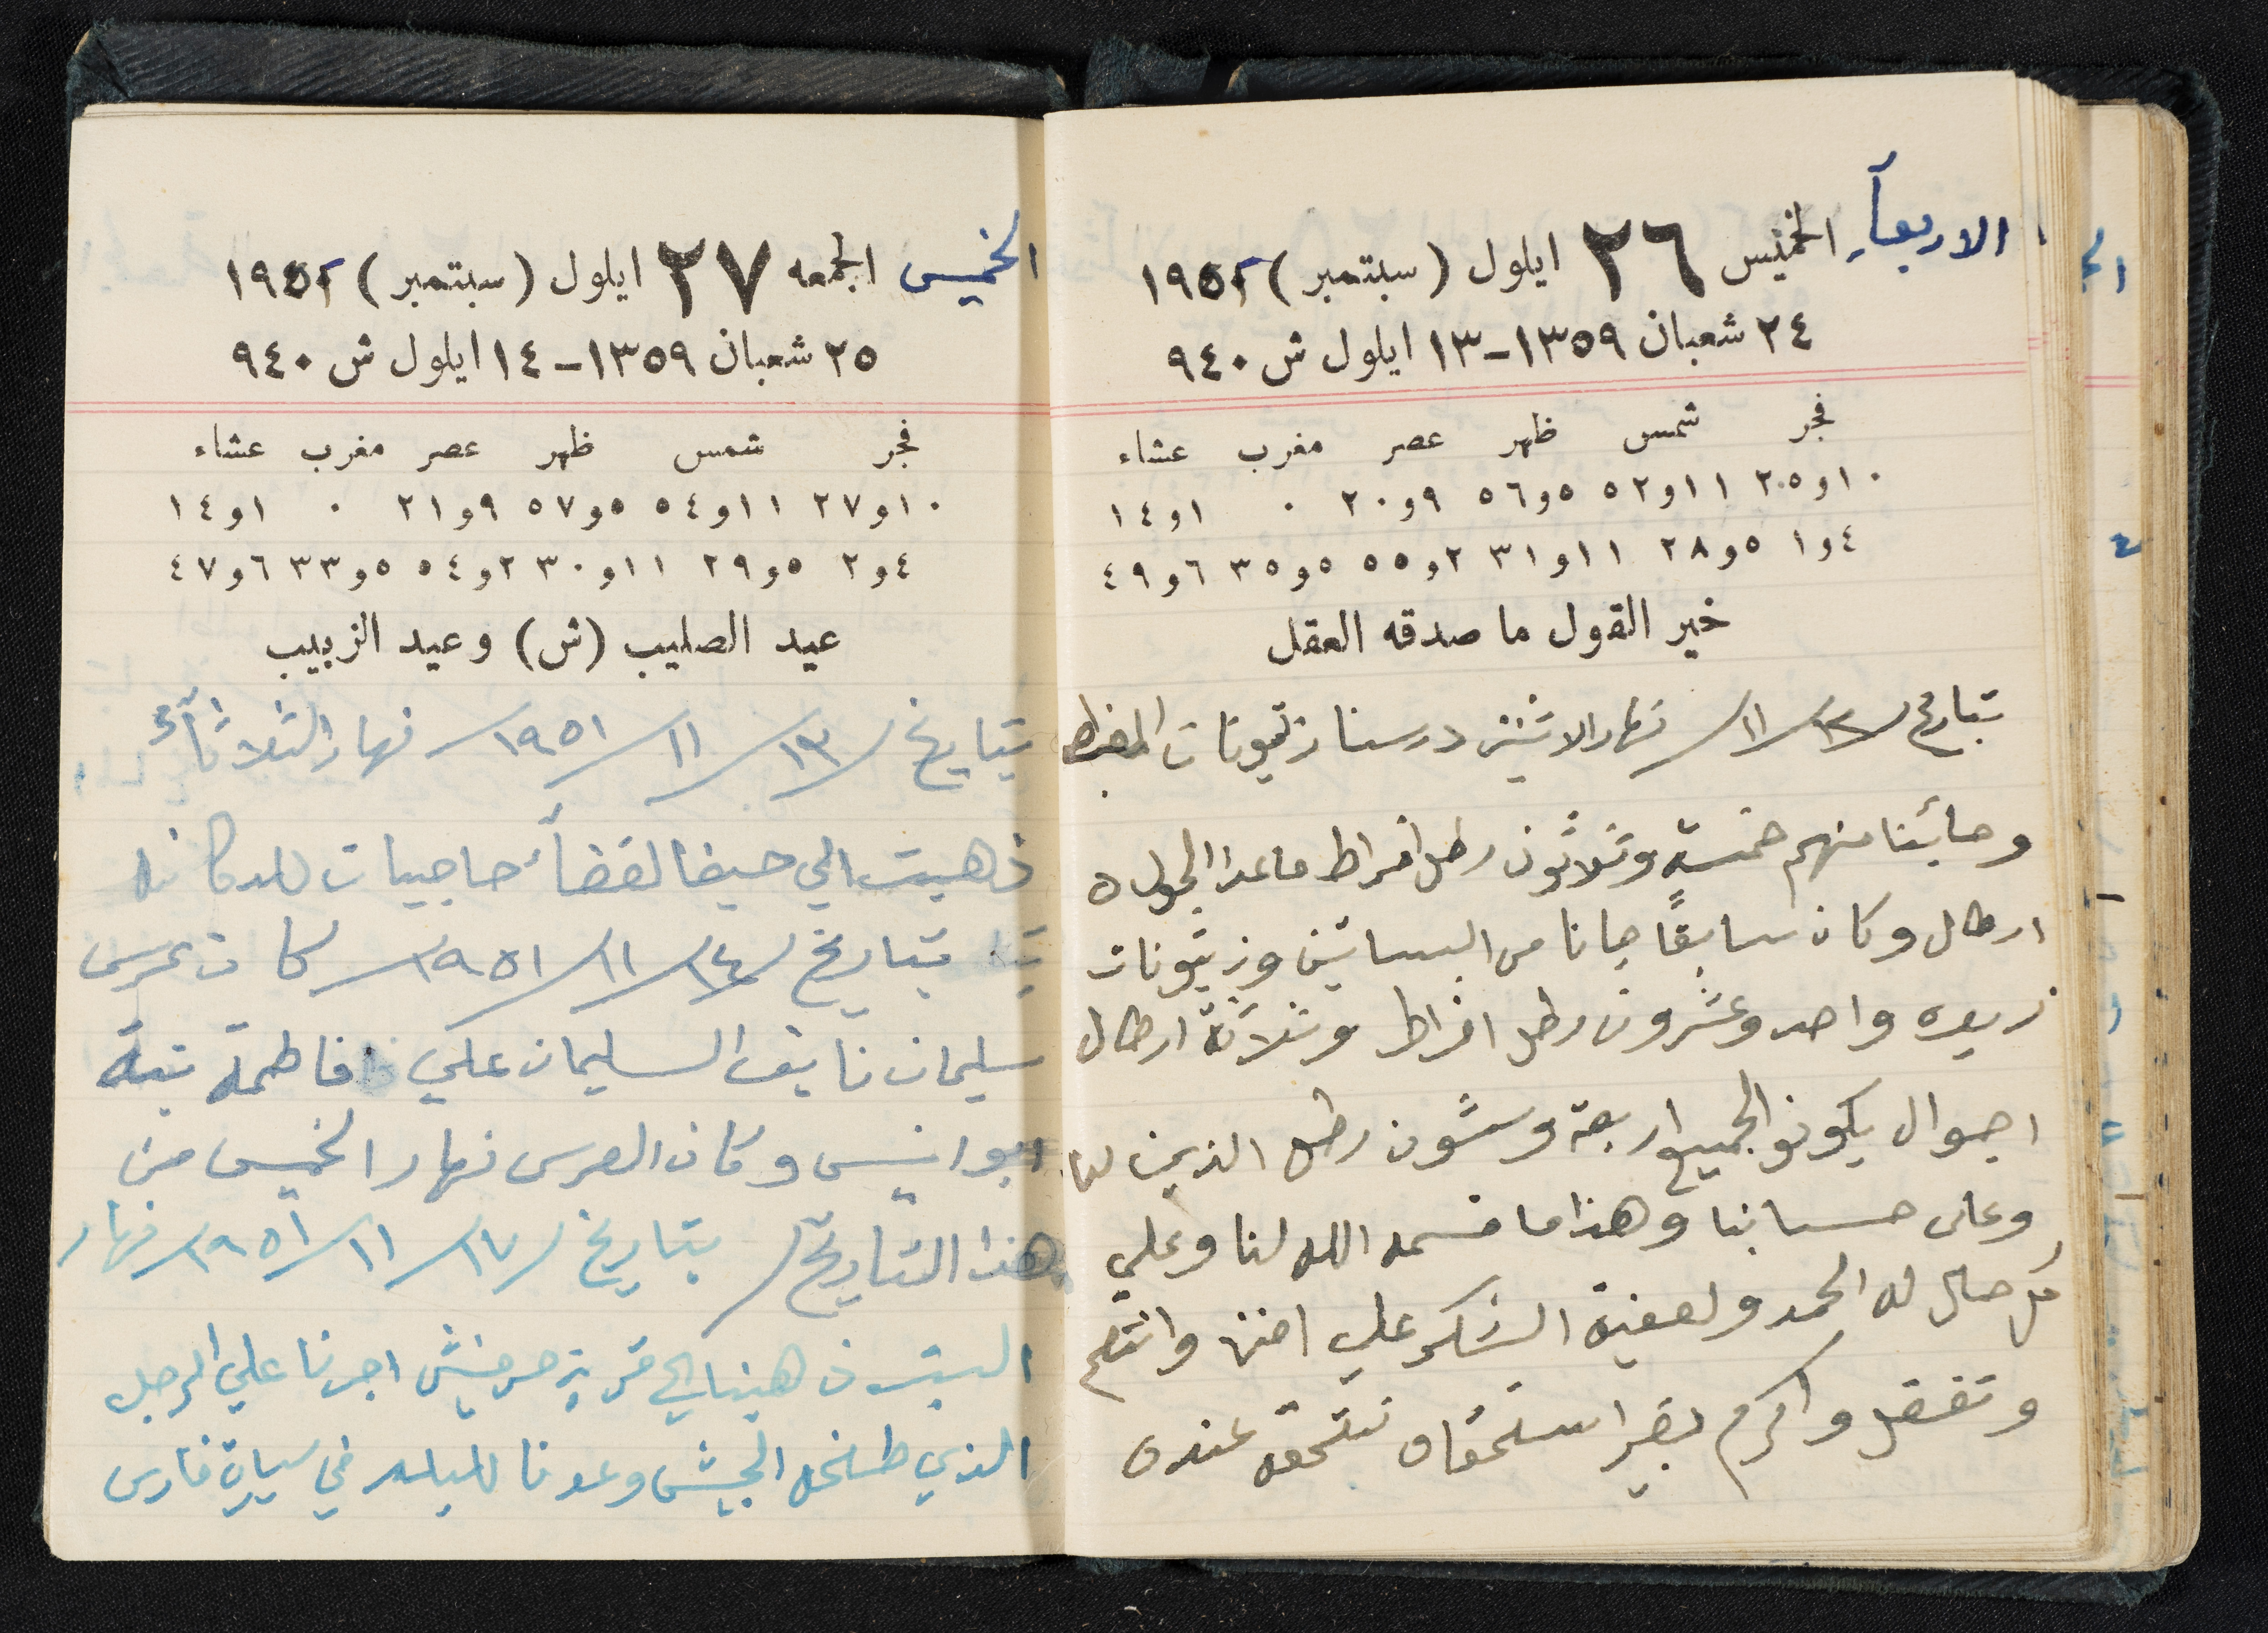 الاربعأ الخميس ٢٦ ايلول (سبتمبر) ١٩٥١
٢٤ شعبان ١٣٥٩-١٣ ايلول ش ٩٤٠
فجر شمس ظهر عصر مغرب عشاء
١٠و٢٥ ١١و٥٢ ٥و٥٦ ٩و٢٠ ٠ ١و١٤
٤و١ ٥و٢٨ ١١و٣١ ٢و٥٥ ٥و٣٥ ٦و٤٩
خير القول ما صدقه العقل
بتاريخ /١٢/١١/ نهار الاثنين درسنا زتيونات
وجائنا منهم خمسة وثلاثون رطل افراط ماعدا الجول ٥
ارطال وكان سابقًا جانا من البساتين وزيتونات
واحد وعشرون رطل افراط وثلاثة ارطال
اجوال يكونو الجميع اربعة وستون رطل الذين لنا
وعلى حسابنا وهذا ما قسمه الله لنا وعلي
كل حال له الحمد والشكر علي
وتفضل واكرم بغير استحقاق نستحقه عنده
الخميس الجمعه ٢٧ ايلول (سبتمبر) ١٩٥١
٢٥ شعبان ١٣٥٩-١٤ ايلول ش ٩٤٠
فجر شمس ظهر عصر مغرب عشاء
١٠و٢٧ ١١و٥٤ ٥و٥٧ ٩و٢١ ٠ ١و١٤
٤و٢ ٥و٢٩ ١١و٣٠ ٢و٥٤ ٥و٣٣ ٦و٤٧
عيد الصليب (ش) وعيد الزبيب
بتاريخ /١٣/١١/١٩٥١/ نهار الثلاثأ
ذهبت الي حيفا لقضأ حاجيات للدكانه
بتاريخ /١٤/١١/١٩٥١/ كان عرس
سليمان نايف السليمان علي فاطمة بنة
ابو انيس وكان العرس نهار الخميس من
هذا التاريخ/ بتاريخ /١٧/١١/١٩٥١/ نهار
السبت ذهبنا الي قرية حرفيش اجرنا علي الرجل
الذي طخه الجيش وعدنا للبلد في سيارة فارس